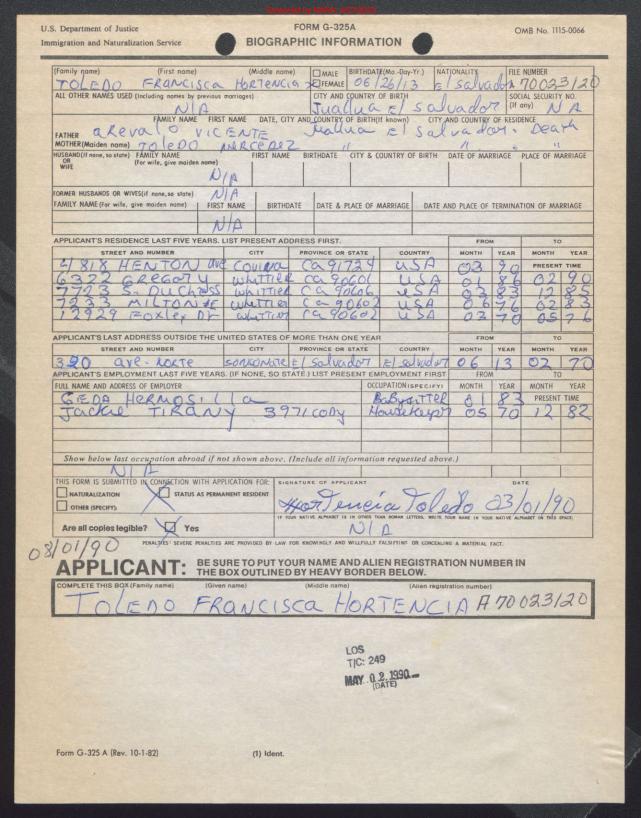 U.S. Department of Justice
Immigration and Naturalization Service
FORM G-325A
BIOGRAPHIC INFORMATION
OMB No. 1115-0066
(Family name) (First name) (Middle name) MALE FEMALE BIRTHDATE(Mo.-Day-Yr.) NATIONALITY FILE NUMBER
TOLEDO FRANCISCA HORTENCIA 06/26/13 El Salvador A 70023120
ALL OTHER NAMES USED (Including names by previous marriages) CITY AND COUNTRY OF BIRTH SOCIAL SECURITY NO. (If any)
N/A El Salvador N A
FAMILY NAME FIRST NAME DATE, CITY AND COUNTRY OF BIRTH(If known) CITY AND COUNTRY OF RESIDENCE
FATHER arevalo VICENTE El Salvador. Death
MOTHER(Maiden name) TOLEDO MERCEDEZ " " "
HUSBAND(If none, so state) OR WIFE FAMILY NAME (For wife, give maiden name) FIRST NAME BIRTHDATE CITY & COUNTRY OF BIRTH DATE OF MARRIAGE PLACE OF MARRIAGE
N/A
FORMER HUSBANDS OR WIVES(if none, so state) N/A
FAMILY NAME (For wife, give maiden name) FIRST NAME BIRTHDATE DATE & PLACE OF MARRIAGE DATE AND PLACE OF TERMINATION OF MARRIAGE
N/A
APPLICANT'S RESIDENCE LAST FIVE YEARS. LIST PRESENT ADDRESS FIRST. FROM TO
STREET AND NUMBER CITY PROVINCE OR STATE COUNTRY MONTH YEAR MONTH YEAR
4818 HENTON ave Covina Ca 91724 USA 03 90 PRESENT TIME
6322 GREGORY WHITTIER ca 90601 USA 01 86 02 90
7723 WHITTIER Ca 90606 USA 03 83 12 85
7233 MILTON WHITTIER Ca 90602 USA 06 76 02 83
12929 Foxley DR WHITTIER Ca 90602 USA 02 70 05 76
APPLICANT'S LAST ADDRESS OUTSIDE THE UNITED STATES OF MORE THAN ONE YEAR FROM TO
STREET AND NUMBER CITY PROVINCE OR STATE COUNTRY MONTH YEAR MONTH YEAR
320 ave. NORTE SONSONATE El Salvador El Salvador 06 13 02 70
APPLICANT'S EMPLOYMENT LAST FIVE YEARS. (IF NONE, SO STATE.) LIST PRESENT EMPLOYMENT FIRST FROM TO
FULL NAME AND ADDRESS OF EMPLOYER OCCUPATION(SPECIFY) MONTH YEAR MONTH YEAR
GEDA HERMOSILLA BaBySITTER 01 83 PRESENT TIME
Jackie TIRANY 3971 cody Housekeeper 05 70 12 82
Show below last occupation abroad if not shown above. (Include all information requested above.)
N/A
THIS FORM IS SUBMITTED IN CONNECTION WITH APPLICATION FOR: SIGNATURE OF APPLICANT DATE
NATURALIZATION STATUS AS PERMANENT RESIDENT
OTHER (SPECIFY): Hortencia Toledo 03/01/90
IF YOUR NATIVE ALPHABET IS IN OTHER THAN ROMAN LETTERS, WRITE YOUR NAME IN YOUR NATIVE ALPHABET IN THIS SPACE:
Are all copies legible? Yes N/A
PENALTIES: SEVERE PENALTIES ARE PROVIDED BY LAW FOR KNOWINGLY AND WILLFULLY FALSIFYING OR CONCEALING A MATERIAL FACT.
03/01/90
APPLICANT: BE SURE TO PUT YOUR NAME AND ALIEN REGISTRATION NUMBER IN
THE BOX OUTLINED BY HEAVY BORDER BELOW.
COMPLETE THIS BOX (Family name) (Given name) (Middle name) (Alien registration number)
TOLEDO FRANCISCA HORTENCIA A 70023120
LOS
T/C: 249
MAY 02 1990
(DATE)
Form G-325 A (Rev. 10-1-82) (1) Ident.